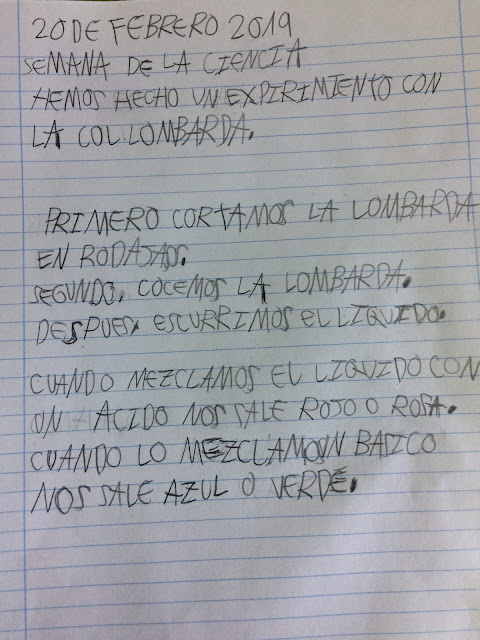 20 DE FEBRERO 2019
SEMANA DE LA CIENCIA
HEMOS HECHO UN EXPIRIMIENTO CON
LA COL LOMBARDA.
PRIMERO CORTAMOS LA LOMBARDA
EN RODAJAS.
SEGUNDO, COCEMOS LA LOMBARDA.
DESPUES, ESCURRIMOS EL LIQUIDO.
CUANDO MEZCLAMOS EL LIQUIDO CON
UN ACIDO NOS SALE ROJO O ROSA.
CUANDO LO MEZCLAMOUN BASICO
NOS SALE AZUL O VERDE.